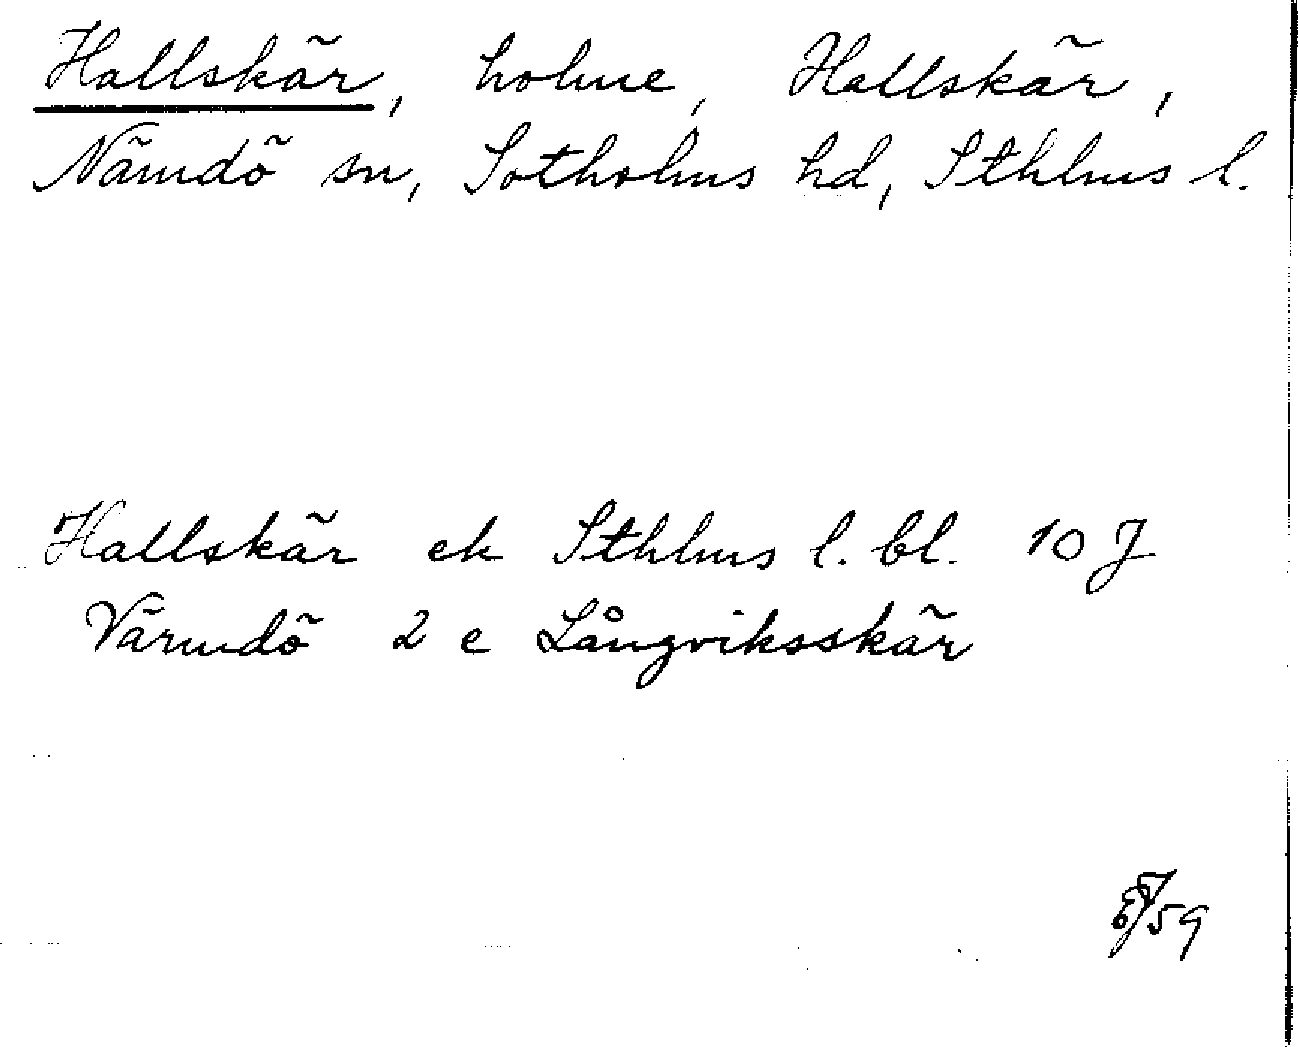 Hallskär, holme, Hallskär,
Nämdö sn, Sotholms hd, Sthlms l.
Hallskär ek Sthlms l. bl. 10 J
Värmdö 2 e Långviksskär
59